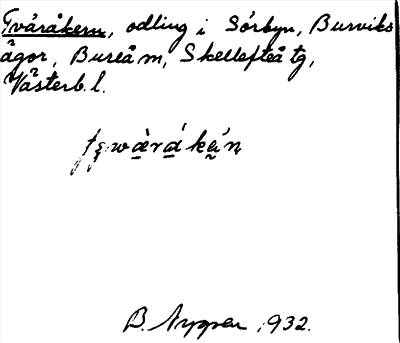 Tväråkern, odling i Sörbyn, Burviks
ägor, Bureå m, Skellefteå tg,
Västerb. l.
B. Nyman, 1932.